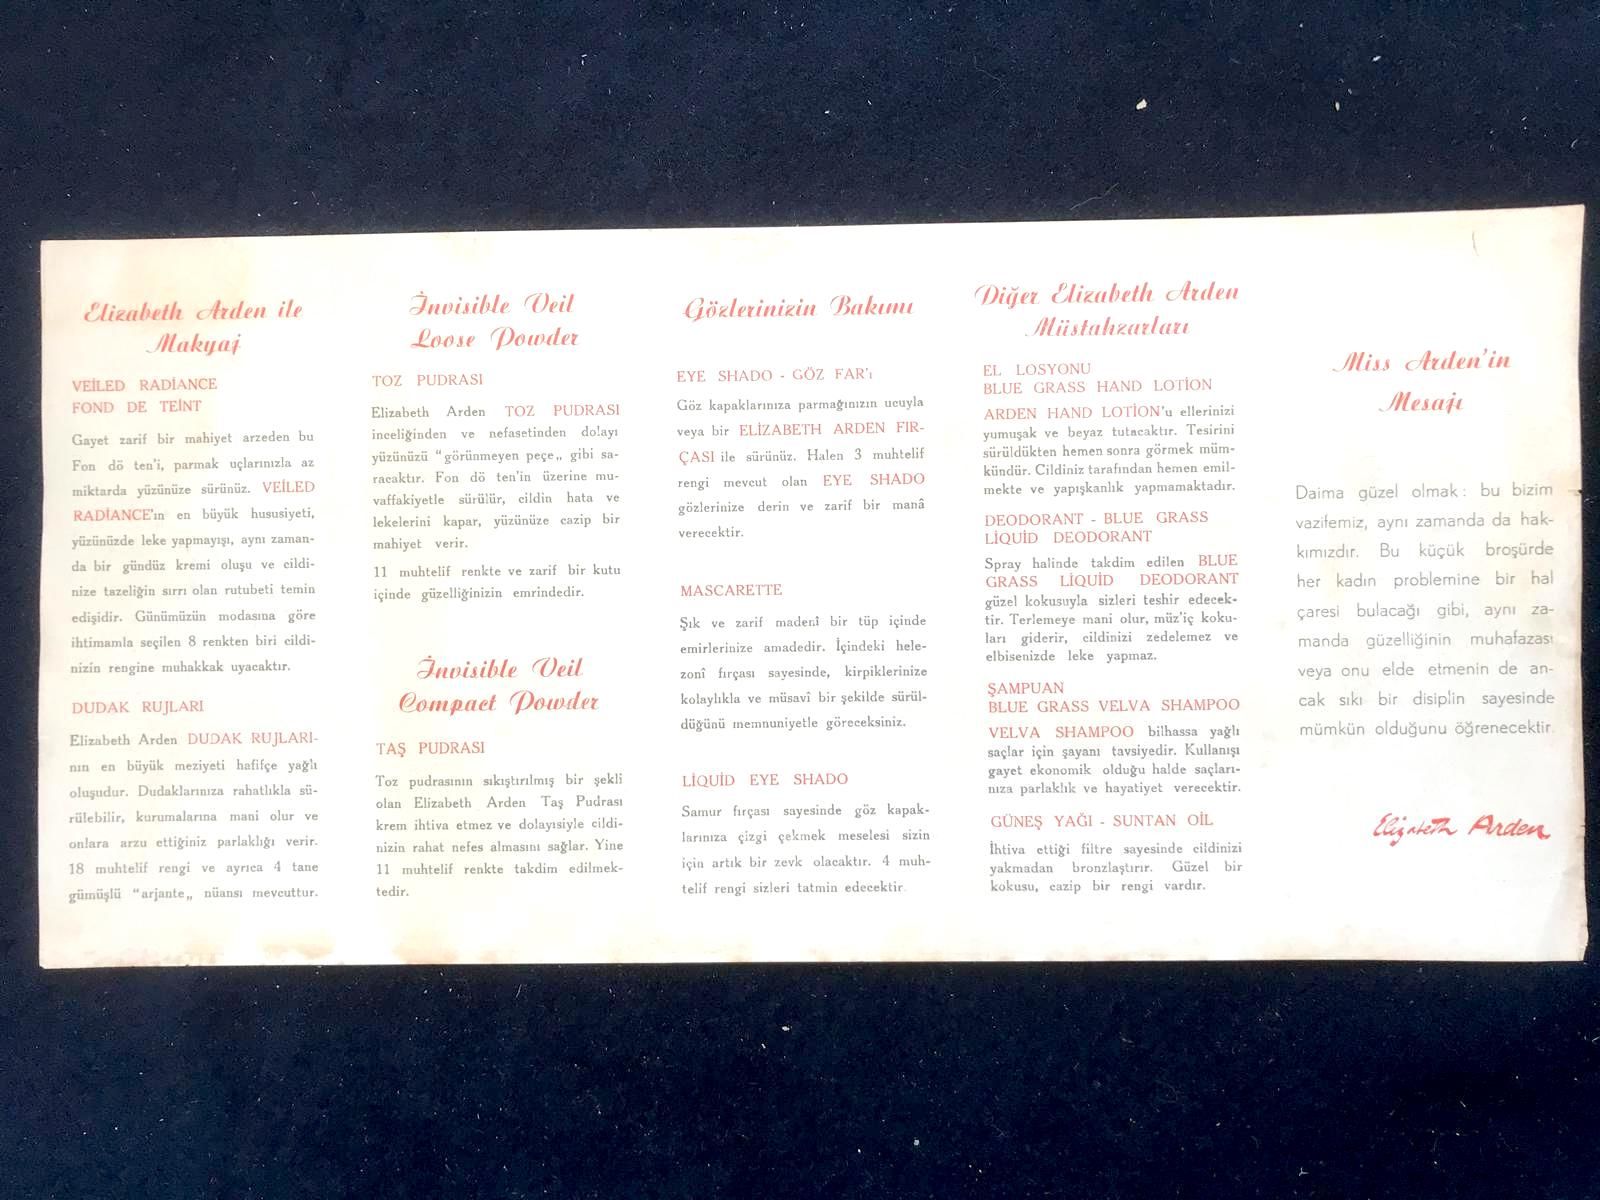 Elizabeth Arden ile
Makyaj
VEİLED RADİANCE
FOND DE TEİNT
Gayet zarif bir mahiyet arzeden bu
Fon dö ten'i, parmak uçlarınızla az
miktarda yüzünüze sürünüz. VEİLED
RADİANCE'ın en büyük hususiyeti,
yüzünüzde leke yapmayışı, aynı zaman-
da bir gündüz kremi oluşu ve cildi-
nize tazeliğin sırrı olan rutubeti temin
edişidir. Günümüzün modasına göre
ihtimamla seçilen 8 renkten biri cildi-
nizin rengine muhakkak uyacaktır.
DUDAK RUJLARI
Elizabeth Arden DUDAK RUJLARI-
nın en büyük meziyeti hafifçe yağlı
oluşudur. Dudaklarınıza rahatlıkla sü-
rülebilir, kurumalarına mani olur ve
onlara arzu ettiğiniz parlaklığı verir.
18 muhtelif rengi ve ayrıca 4 tane
gümüşlü “arjante„ nüansı mevcuttur.
İnvisible Veil
Loose Powder
TOZ PUDRASI
Elizabeth Arden TOZ PUDRASI
inceliğinden ve nefasetinden dolayı
yüzünüzü “görünmeyen peçe„ gibi sa-
racaktır. Fon dö ten'in üzerine mu-
vaffakiyetle sürülür, cildin hata ve
lekelerini kapar, yüzünüze cazip bir
mahiyet verir.
11 muhtelif renkte ve zarif bir kutu
içinde güzelliğinizin emrindedir.
İnvisible Veil
Compact Powder
TAŞ PUDRASI
Toz pudrasının sıkıştırılmış bir şekli
olan Elizabeth Arden Taş Pudrası
krem ihtiva etmez ve dolayısiyle cildi-
nizin rahat nefes almasını sağlar. Yine
11 muhtelif renkte takdim edilmek-
tedir.
Gözlerinizin Bakımı
EYE SHADO - GÖZ FAR'ı
Göz kapaklarınıza parmağınızın ucuyla
veya bir ELİZABETH ARDEN FIR-
ÇASI ile sürünüz. Halen 3 muhtelif
rengi mevcut olan EYE SHADO
gözlerinize derin ve zarif bir manâ
verecektir.
MASCARETTE
Şık ve zarif madenî bir tüp içinde
emirlerinize amadedir. İçindeki hele-
zonî fırçası sayesinde, kirpiklerinize
kolaylıkla ve müsavî bir şekilde sürül-
düğünü memnuniyetle göreceksiniz.
LİQUİD EYE SHADO
Samur fırçası sayesinde göz kapak-
larınıza çizgi çekmek meselesi sizin
için artık bir zevk olacaktır. 4 muh-
telif rengi sizleri tatmin edecektir.
Diğer Elizabeth Arden
Müstahzarları
EL LOSYONU
BLUE GRASS HAND LOTİON
ARDEN HAND LOTİON'u ellerinizi
yumuşak ve beyaz tutacaktır. Tesirini
sürüldükten hemen sonra görmek müm-
kündür. Cildiniz tarafından hemen emil-
mekte ve yapışkanlık yapmamaktadır.
DEODORANT - BLUE GRASS
LİQUİD DEODORANT
Spray halinde takdim edilen BLUE
GRASS LİQUİD DEODORANT
güzel kokusuyla sizleri teshir edecek-
tir. Terlemeye mani olur, müz'iç koku-
ları giderir, cildinizi zedelemez ve
elbisenizde leke yapmaz.
ŞAMPUAN
BLUE GRASS VELVA SHAMPOO
VELVA SHAMPOO bilhassa yağlı
saçlar için şayanı tavsiyedir. Kullanışı
gayet ekonomik olduğu halde saçları-
nıza parlaklık ve hayatiyet verecektir.
GÜNEŞ YAĞI - SUNTAN OİL
İhtiva ettiği filtre sayesinde cildinizi
yakmadan bronzlaştırır. Güzel bir
kokusu, cazip bir rengi vardır.
Miss Arden'in
Mesajı
Daima güzel olmak : bu bizim
vazifemiz, aynı zamanda da hak-
kımızdır. Bu küçük broşürde
her kadın problemine bir hal
çaresi bulacağı gibi, aynı za-
manda güzelliğinin muhafazası
veya onu elde etmenin de an-
cak sıkı bir disiplin sayesinde
mümkün olduğunu öğrenecektir.
Elizabeth Arden